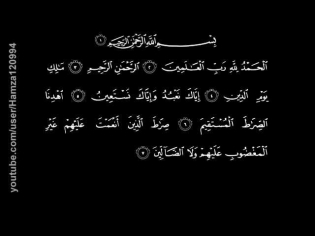 بِسْمِ اللَّهِ الرَّحْمَٰنِ الرَّحِيمِ ١
الْحَمْدُ لِلَّهِ رَبِّ الْعَالَمِينَ ٢ الرَّحْمَٰنِ الرَّحِيمِ ٣ مَالِكِ
يَوْمِ الدِّينِ ٤ إِيَّاكَ نَعْبُدُ وَإِيَّاكَ نَسْتَعِينُ ٥ اهْدِنَا
الصِّرَاطَ الْمُسْتَقِيمَ ٦ صِرَاطَ الَّذِينَ أَنْعَمْتَ عَلَيْهِمْ غَيْرِ
الْمَغْضُوبِ عَلَيْهِمْ وَلَا الضَّالِّينَ ٧
youtube.com/user/Hamza120994